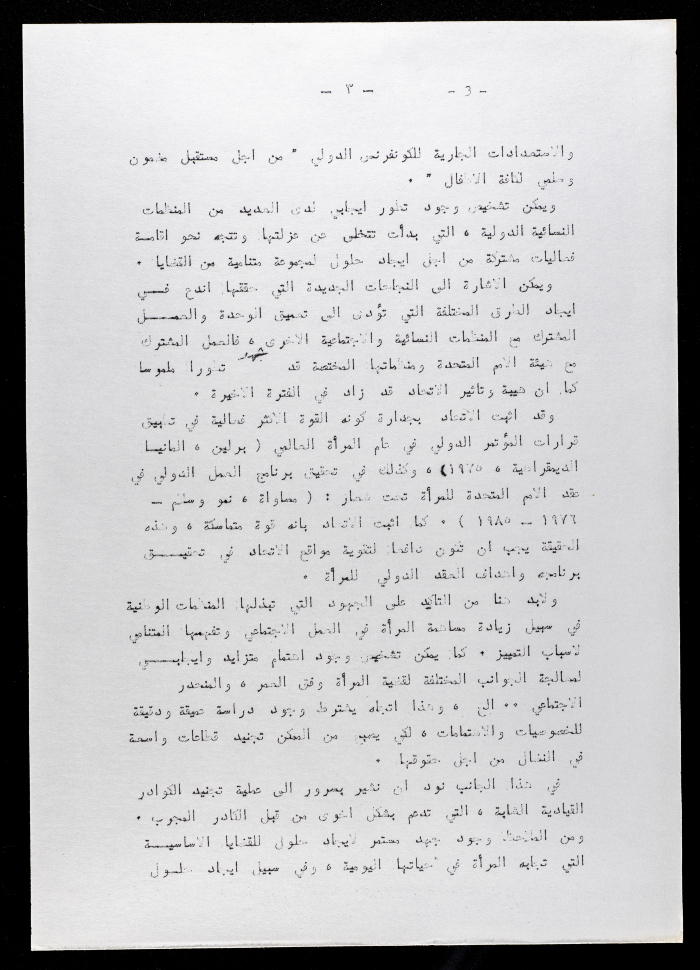 - 3 -    - ٣ -
والاستعدادات الجارية للكونفرنس الدولي " من اجل مستقبل مضمون
وسلمي لكافة الاطفال " .
ويمكن تشخيص وجود تطور ايجابي لدى العديد من المنظمات
النسائية الدولية ، التي بدأت تتخلى عن عزلتها وتتجه نحو اقامــة
فعاليات مشتركة من اجل ايجاد حلول لمجموعة متنامية من القضايا .
ويمكن الاشارة الى النجاحات الجديدة التي حققها اندع فــي
ايجاد الطرق المختلفة التي تؤدى الى تعميق الوحدة والعمــل
المشترك مع المنظمات النسائية والاجتماعية الاخرى ، فالعمل المشترك
مع هيئة الامم المتحدة ومنظماتها المختصة قد شهد تطورا ملموسا
كما ان هيبة وتاثير الاتحاد قد زاد في الفترة الاخيرة .
وقد اثبت الاتحاد بجدارة كونه القوة الاكثر فعالية في تطبيق
قرارات المؤتمر الدولي في عام المرأة العالمي ( برلين ، المانيــا
الديمقراطية ، ١٩٧٥) ، وكذلك في تحقيق برنامج العمل الدولي في
عقد الامم المتحدة للمرأة تحت شعار : ( مساواة ، نمو وسلم -
١٩٧٦ - ١٩٨٥ ) . كما اثبت الاتحاد بانه قوة متماسكة ، وهذه
الحقيقة يجب ان تكون دافعا لتقوية مواقع الاتحاد في تحقيــق
برنامجه واهداف العقد الدولي للمرأة .
ولابد هنا من التأكيد على الجهود التي تبذلها المنظمات الوطنية
في سبيل زيادة مساهمة المرأة في العمل الاجتماعي وتفهمها المتنامي
لاسباب التمييز . كما يمكن تشخيص وجود اهتمام متزايد وايجابــي
لمعالجة الجوانب المختلفة لقضية المرأة وفق العمر ، والمنحدر
الاجتماعي .. الخ ، وهذا اتجاه يشترط وجود دراسة عميقة ودقيقة
للخصوصيات والاهتمامات ، لكي يصبح من الممكن تجنيد قطاعات واسعة
في النضال من اجل حقوقها .
في هذا الجانب نود ان نشير بسرور الى عملية تجنيد الكوادر
القيادية الشابة ، التي تدعم بشكل اخوى من قبل الكادر المجرب .
ومن الملاحظ وجود جهد مستمر لايجاد حلول للقضايا الاساسيــة
التي تجابه المرأة في حياتها اليومية ، وفي سبيل ايجاد حلــول